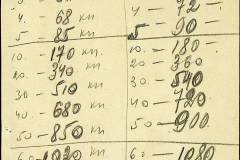 4. - 68 кп. 4 - 72 -
5. - 85 кп. 5 - 90 -
10. - 170 кп. 10. - 180 -
20 - 340 кп. 20 - 360
30 - 510 30. - 540
40 - 680 кп 40 - 720
50 - 850 кп. 50 - 900.
60 - 1020 кп. 60 - 1080